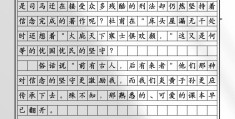 是司马迁在接受众多残酷的刑法却仍然坚持着
信念完成的著作呢？杜甫在“床头屋漏无干处”
时还想着“大庇天下寒士俱欢颜。”这又是何
等的忧国忧民的坚守？
俗话说“前有古人，后有来者”他们那种
对信念的坚守是激励我。而我们炎黄子孙更应
传承下去。殊不知，那熟悉的、可爱的课本早
已翻开。